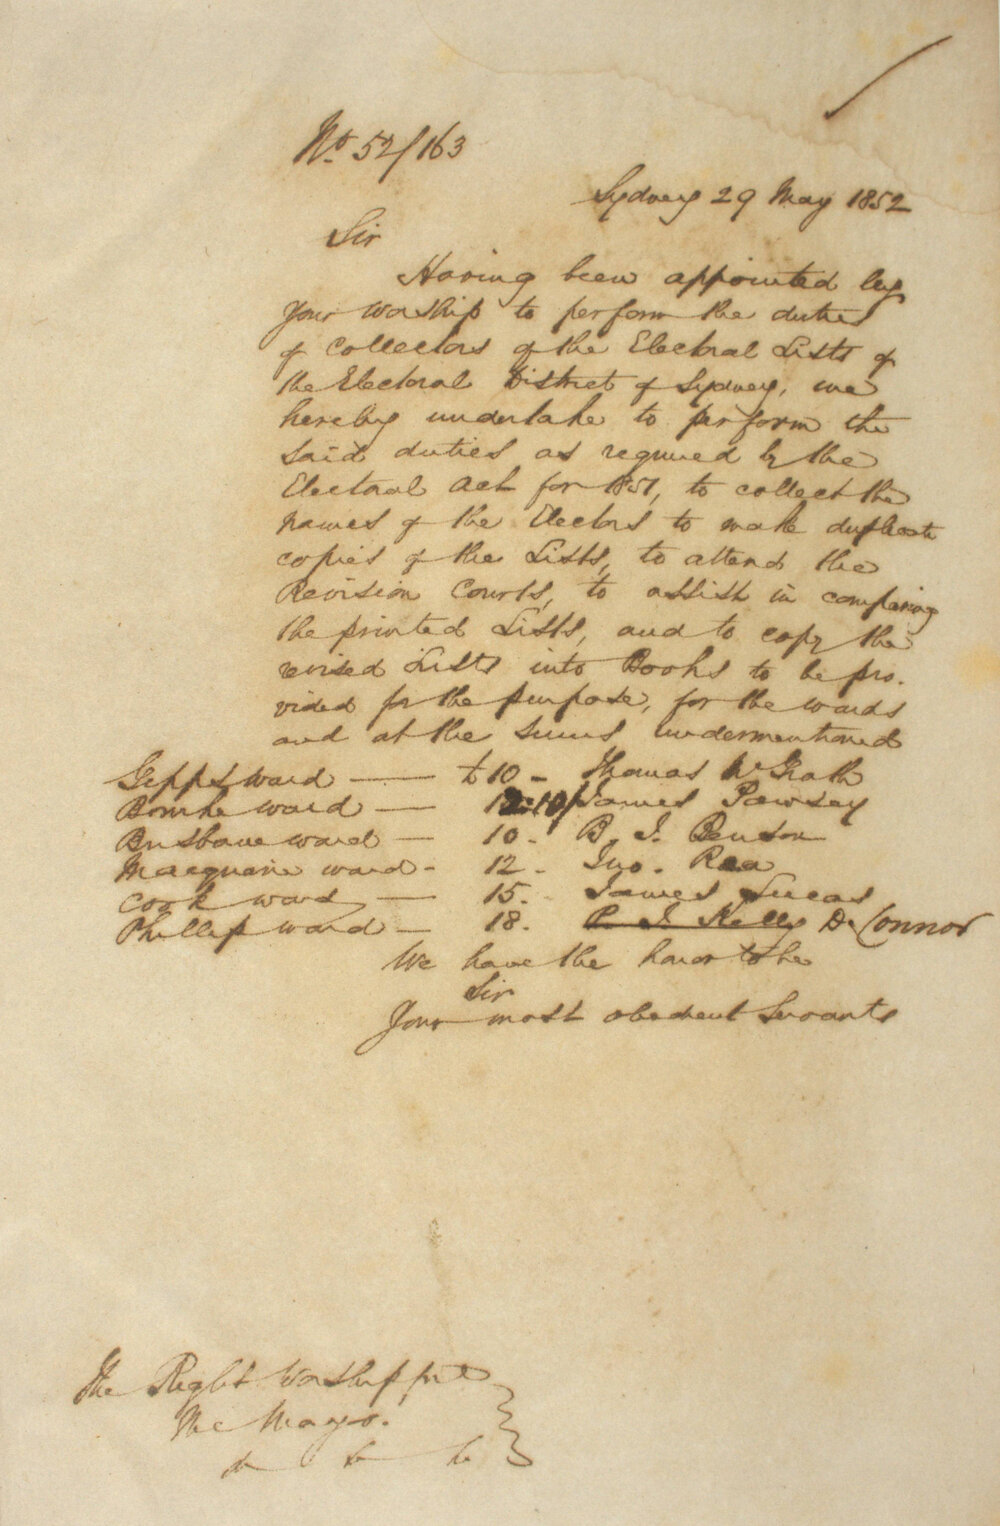 No. 52/163
Sydney 29 May 1852
Sir
Having been appointed by
Your Worship to perform the duties
of Collectors of the Electoral Lists of
the Electoral District of Sydney, we
hereby undertake to perform the
said duties as required by the
Electoral Act for 1851, to collect the
names of the Electors to make duplicate
copies of the Lists, to attend the
Revision Courts, to assist in comparing
the printed Lists, and to copy the
revised Lists into Books to be pro-
vided for the purpose, for the wards
and at the sums undermentioned
Gipps ward — £10 - Thomas McGrath
Bourke ward — 12:10/ James Pawsey
Brisbane ward — 10 - B. J. Benson
Macquarie ward - 12 - Jno. Rea
Cook ward — 15. James Lucas
Phillip ward — 18. P. J. Kelly D. Connor
We have the honor to be
Sir
Your most obedient Servants
The Right Worshipful
The Mayor.
&c &c &c